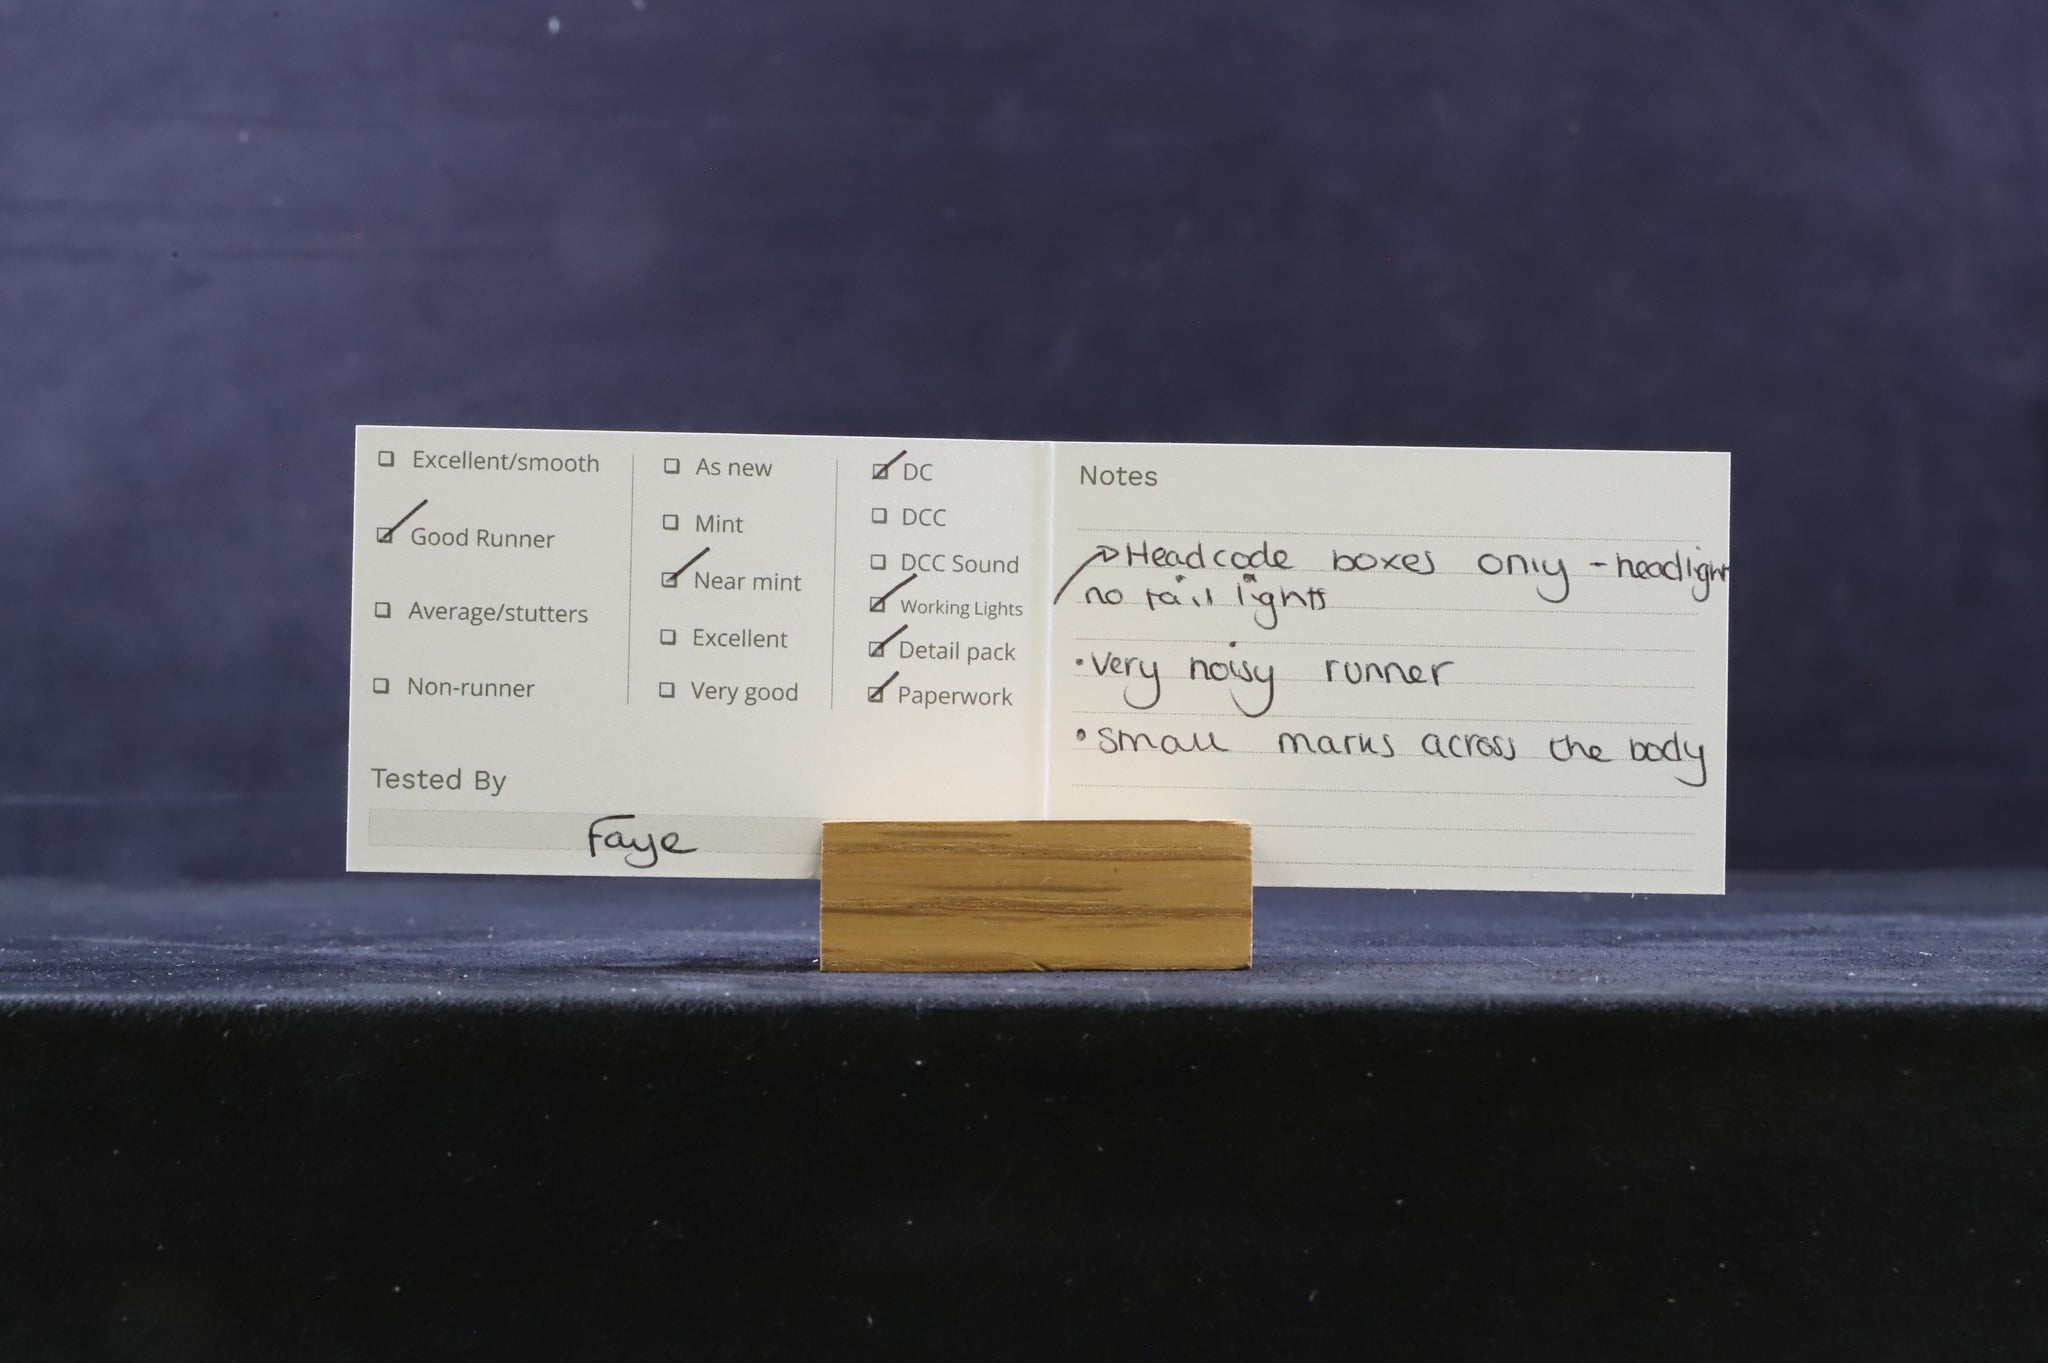 Excellent/smooth
Good Runner
Average/stutters
Non-runner
As new
Mint
Near mint
Excellent
Very good
DC
DCC
DCC Sound
Working Lights
Detail pack
Paperwork
Tested By
Faye
Notes
Headcode boxes only - headlight
no tail lights
• very noisy runner
• small marks across the body